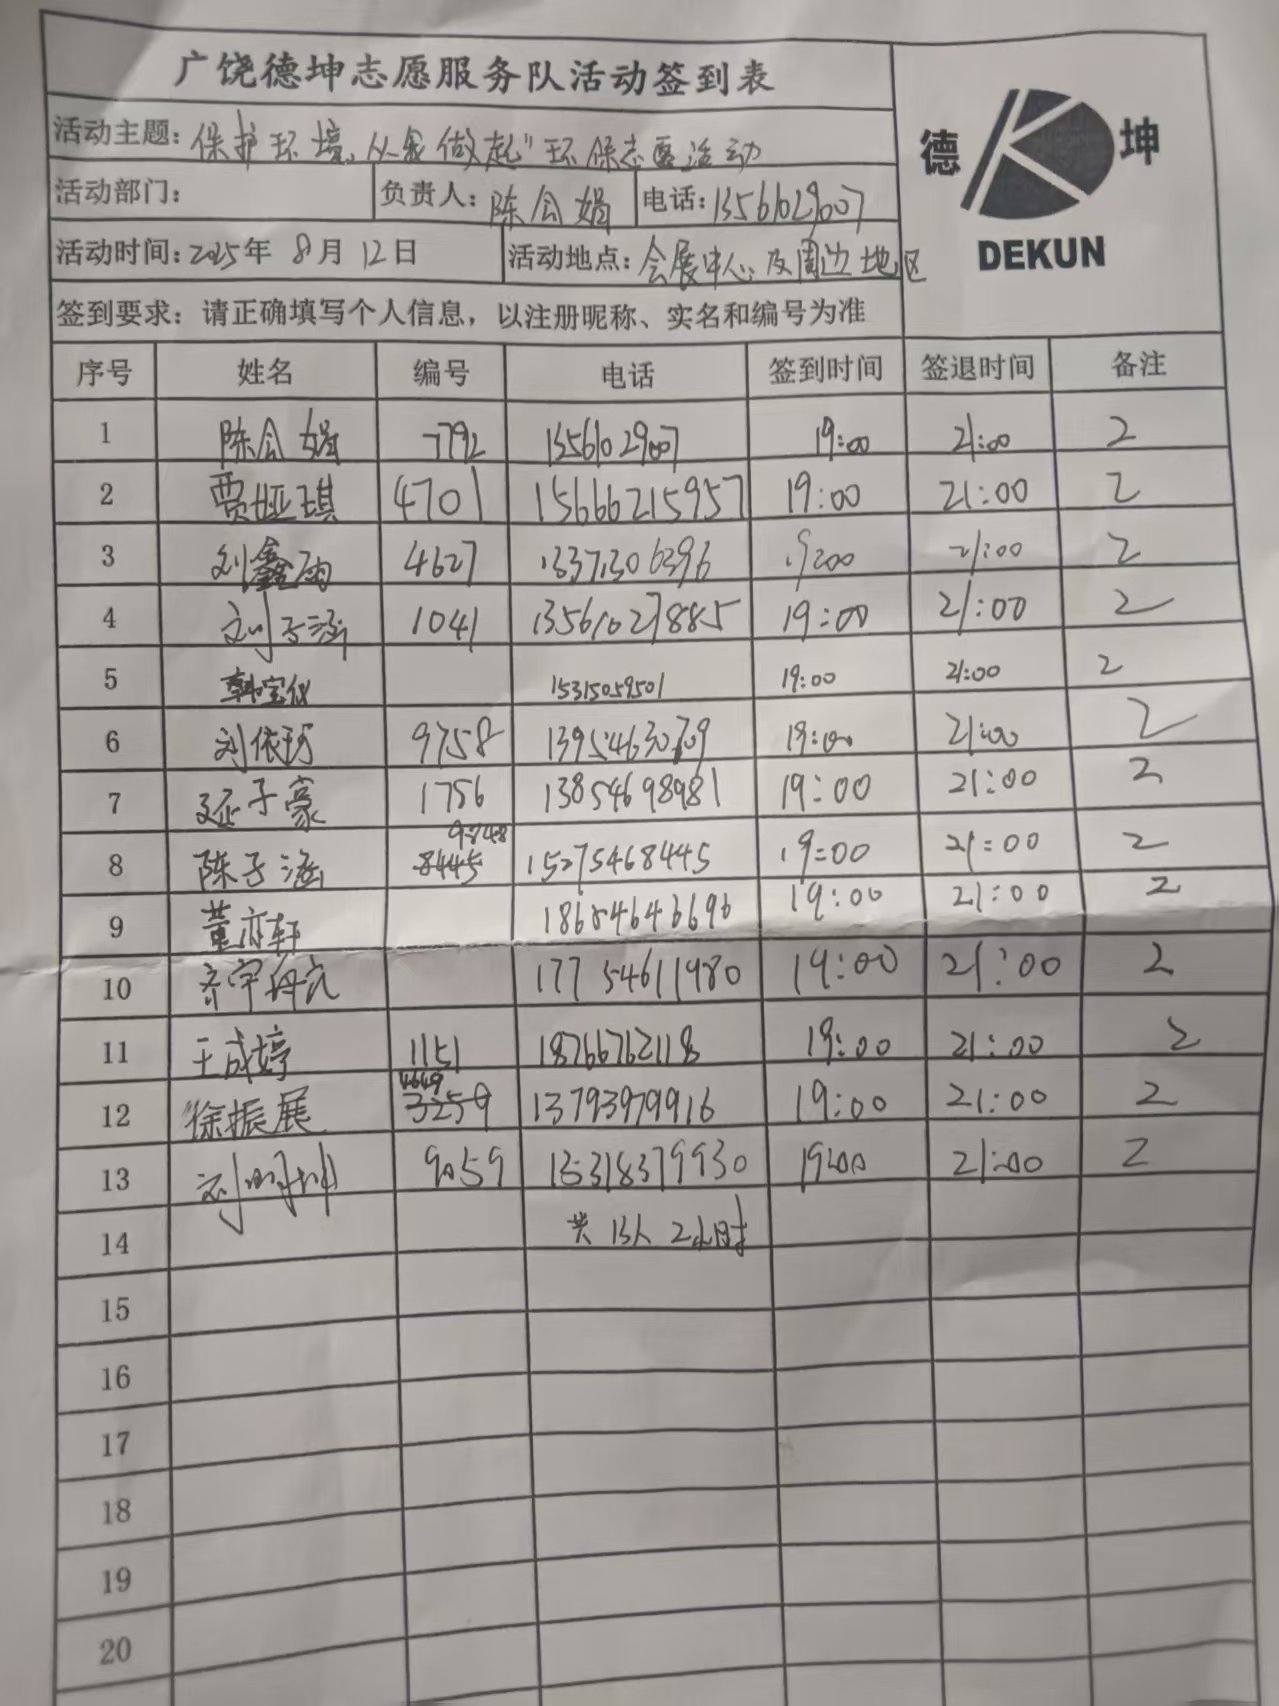 广饶德坤志愿服务队活动签到表
活动主题：保护环境，从我做起"环保志愿活动
德 坤
DEKUN
活动部门： 负责人：陈会娟 电话：13561029007
活动时间：2025年 8月 12日 活动地点：会展中心及周边地区
签到要求：请正确填写个人信息，以注册昵称、实名和编号为准
序号 姓名 编号 电话 签到时间 签退时间 备注
1 陈会娟 7792 13561029007 19:00 21:00 2
2 贾娅琪 4701 15666215957 19:00 21:00 2
3 刘鑫雨 4627 13371306396 19:00 21:00 2
4 刘子涵 1041 13561027885 19:00 21:00 2
5 韩宝仪 15315059501 19:00 21:00 2
6 刘依 9758 13954630709 19:00 21:00 2
7 延子豪 1756 13854698981 19:00 21:00 2
8 陈子涵 8445 9848 15275468445 19:00 21:00 2
9 董亦轩 18684646696 19:00 21:00 2
10 齐宇 17754611980 19:00 21:00 2
11 王成婷 1151 18766762118 19:00 21:00 2
12 徐振展 3259 4649 13793979916 19:00 21:00 2
13 刘明坤 9059 15318379930 19:00 21:00 2
14 共13人 2小时
15
16
17
18
19
20